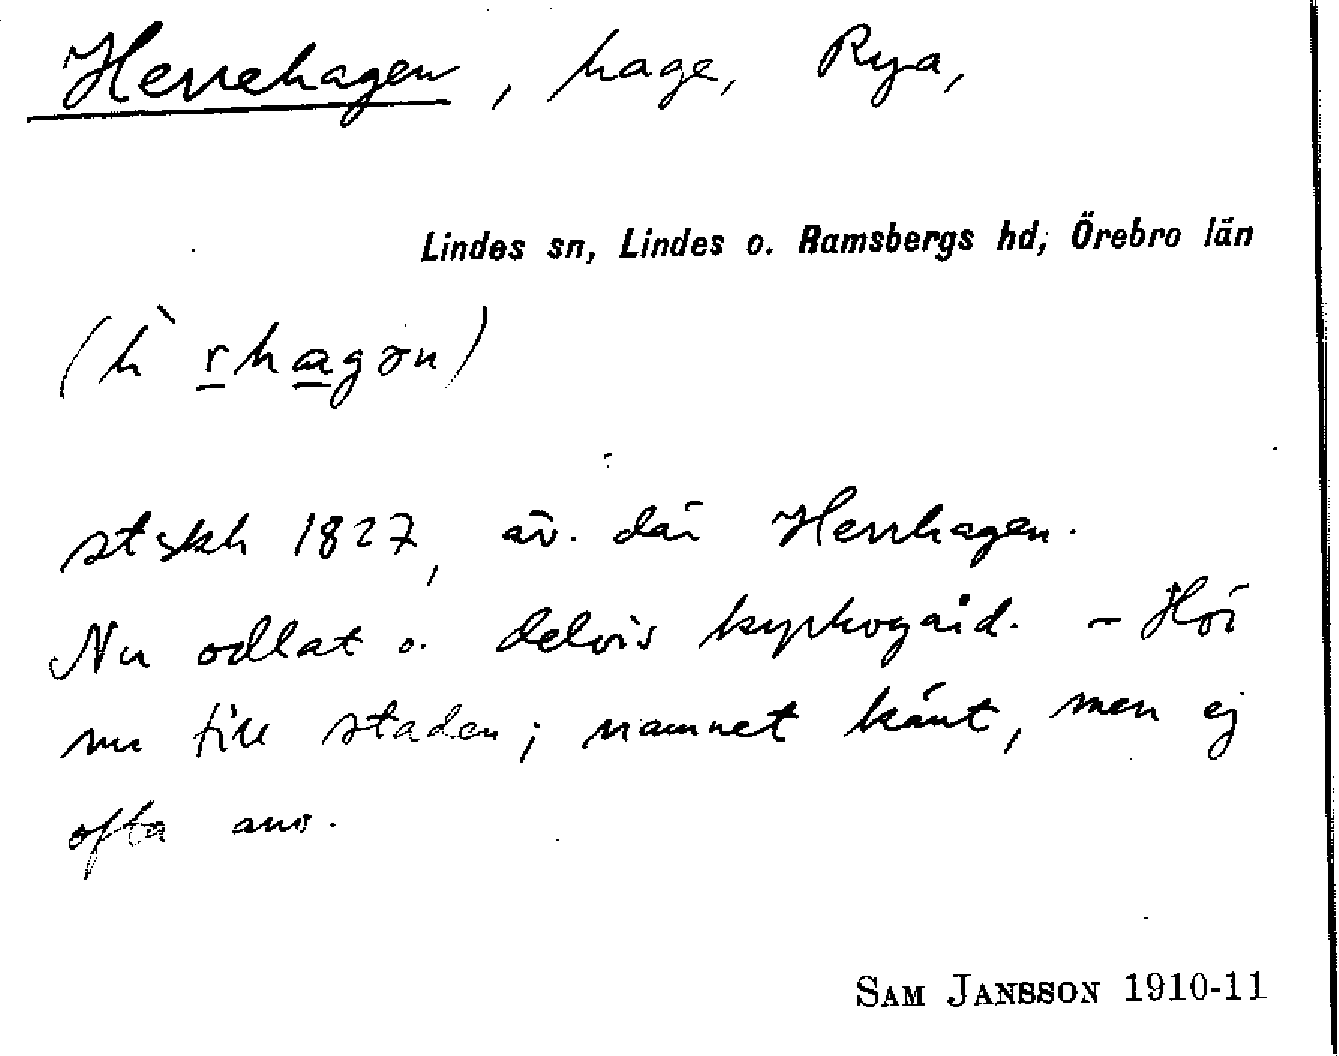 Herrehagen, hage, Rya,
Lindes sn, Lindes o. Ramsbergs hd, Örebro län
(h` rhagən)
st skh 1827, äv. där Herrhagen.
Nu odlat o. delvis kyrkogård. – Hör
nu till staden; namnet känt, men ej
ofta anv.
SAM JANSSON 1910-11